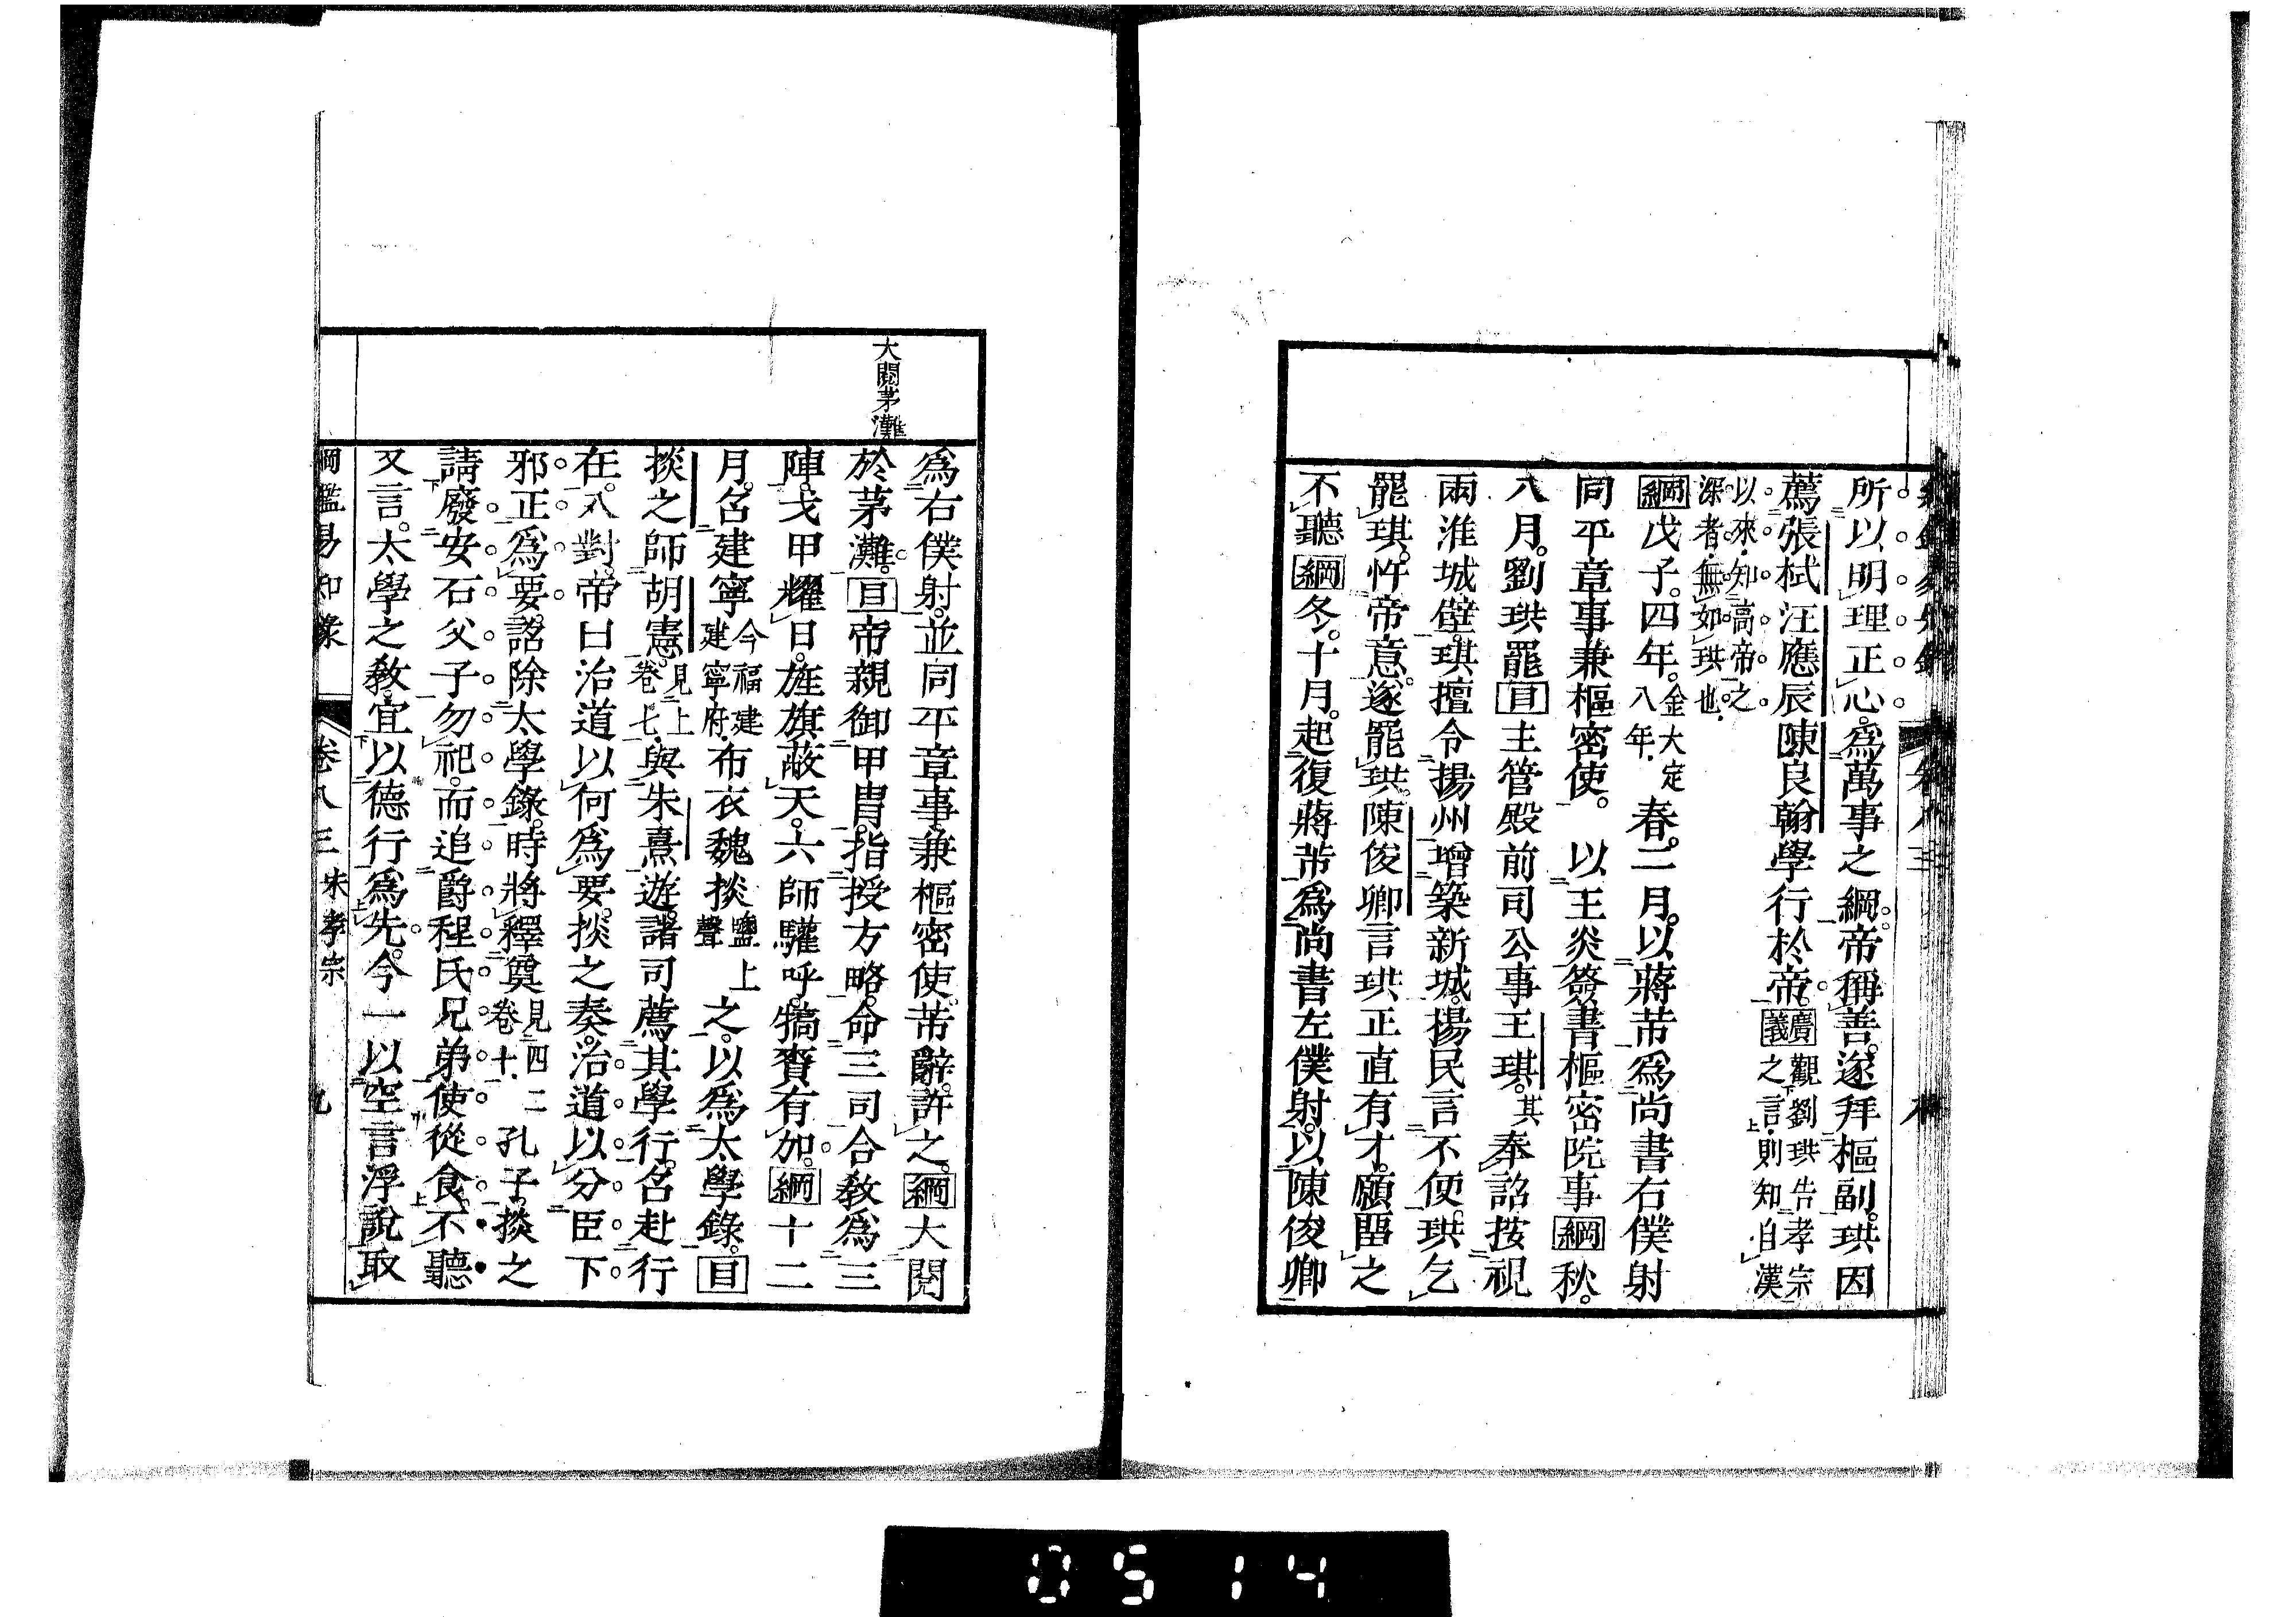 所以明理正心。爲萬事之綱。帝稱善。遂拜樞副。珙因
薦張栻汪應辰陳良翰學行於帝。廣義觀劉珙告孝宗之言。則知自漢
以來。知高帝之深者。無如珙也。
綱戊子。四年。金大定八年。春。二月。以蔣芾爲尚書右僕射
同平章事兼樞密使。以王炎簽書樞密院事綱秋。
八月。劉珙罷目主管殿前司公事王琪。其奉詔按視
兩淮城壁。琪擅令揚州增築新城。揚民言不便。珙乞
罷琪。忤帝意。遂罷珙。陳俊卿言珙正直有才。願畱之
不聽綱冬。十月。起復蔣芾爲尚書左僕射。以陳俊卿
大閱茅灘
爲右僕射。並同平章事兼樞密使。芾辭。許之。綱大閱
於茅灘。目帝親御甲冑。指授方略。命三司合敎爲三
陣。戈甲耀日。旌旗蔽天。六師驩呼。犒賚有加。綱十二
月。召建寧今福建建寧府。布衣魏掞鹽上聲之。以爲太學錄。目
掞之師胡憲。見上卷七。與朱熹遊。諸司薦其學行。召赴行
在。入對。帝曰治道以何爲要。掞之奏。治道以分臣下
邪正爲要。詔除太學錄。時將釋奠見四二卷十。孔子。掞之
請廢安石父子勿祀。而追爵程氏兄弟使從食。不聽
又言。太學之敎。宜以德行爲先。今一以空言浮說取
綱鑑易知錄 卷八三 宋孝宗 九